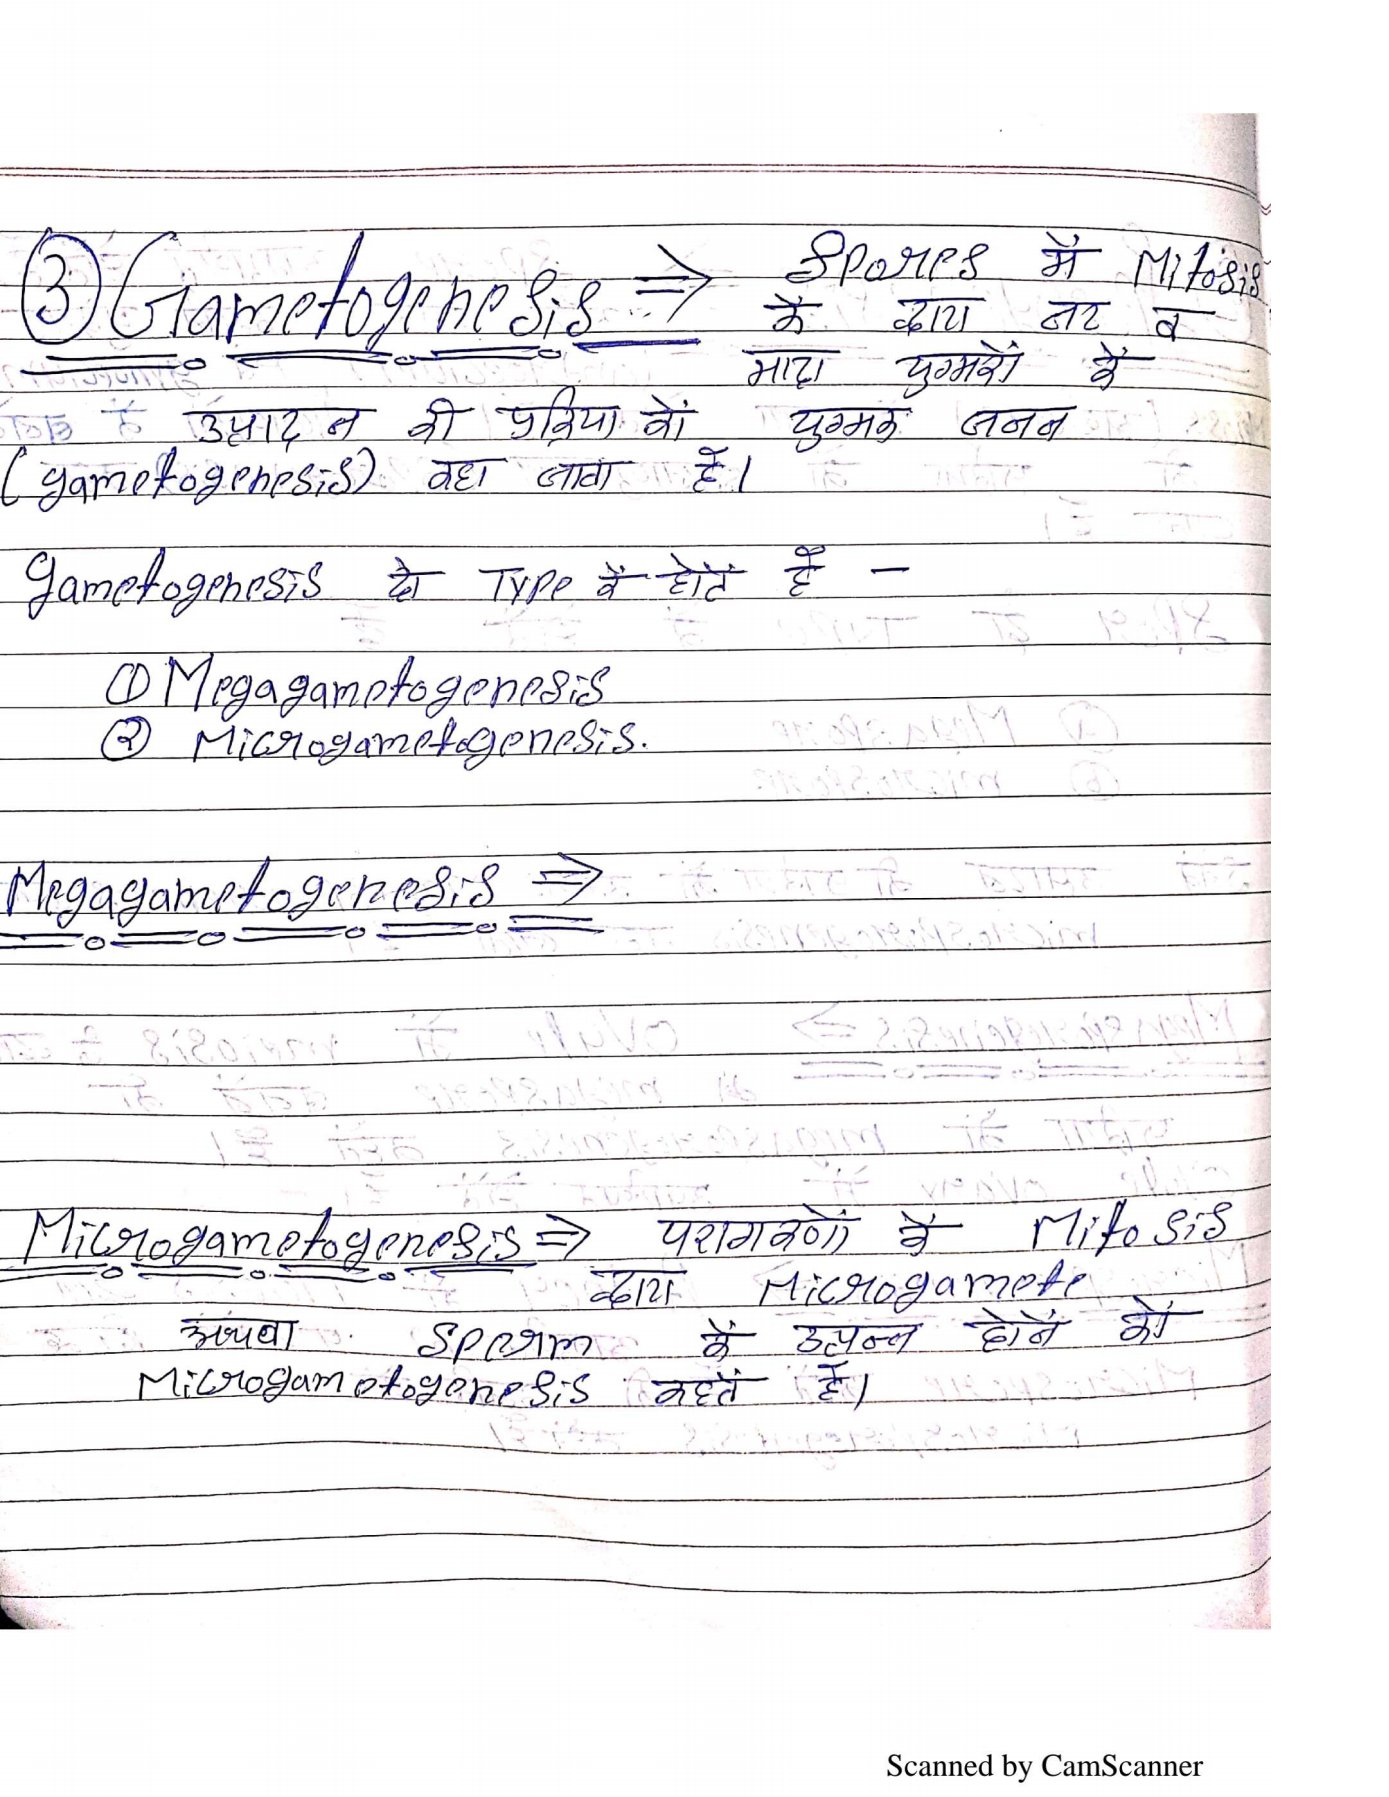 ③ Gametogenesis ⇒ Spores में Mitosis
के द्वारा नर व
मादा युग्मकों के
उत्पादन की प्रक्रिया को युग्मक जनन
(gametogenesis) कहा जाता है।
Gametogenesis दो Type के होते हैं –
① Megagametogenesis
② Microgametogenesis.
Megagametogenesis ⇒
Microgametogenesis ⇒ परागकणों के Mitosis
द्वारा Microgamete
अथवा Sperm के उत्पन्न होने को
Microgametogenesis कहते हैं।
Scanned by CamScanner